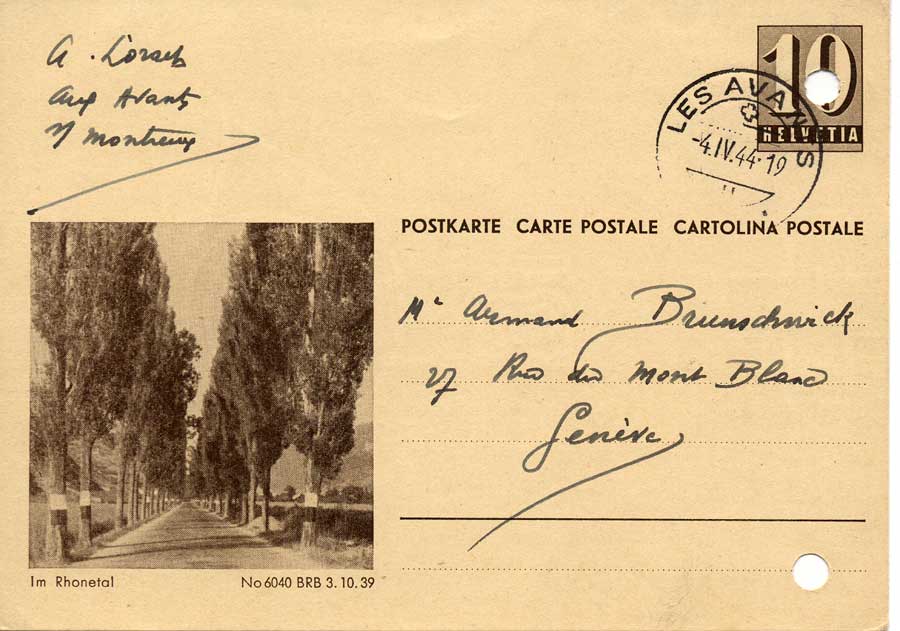 A.
Aux Avants
s/ Montreux
10
HELVETIA
LES AVANTS
-4.IV.44-19
POSTKARTE CARTE POSTALE CARTOLINA POSTALE
Mr Armand Brunschwick
27 Rue du Mont Blanc
Genève
Im Rhonetal No 6040 BRB 3.10.39